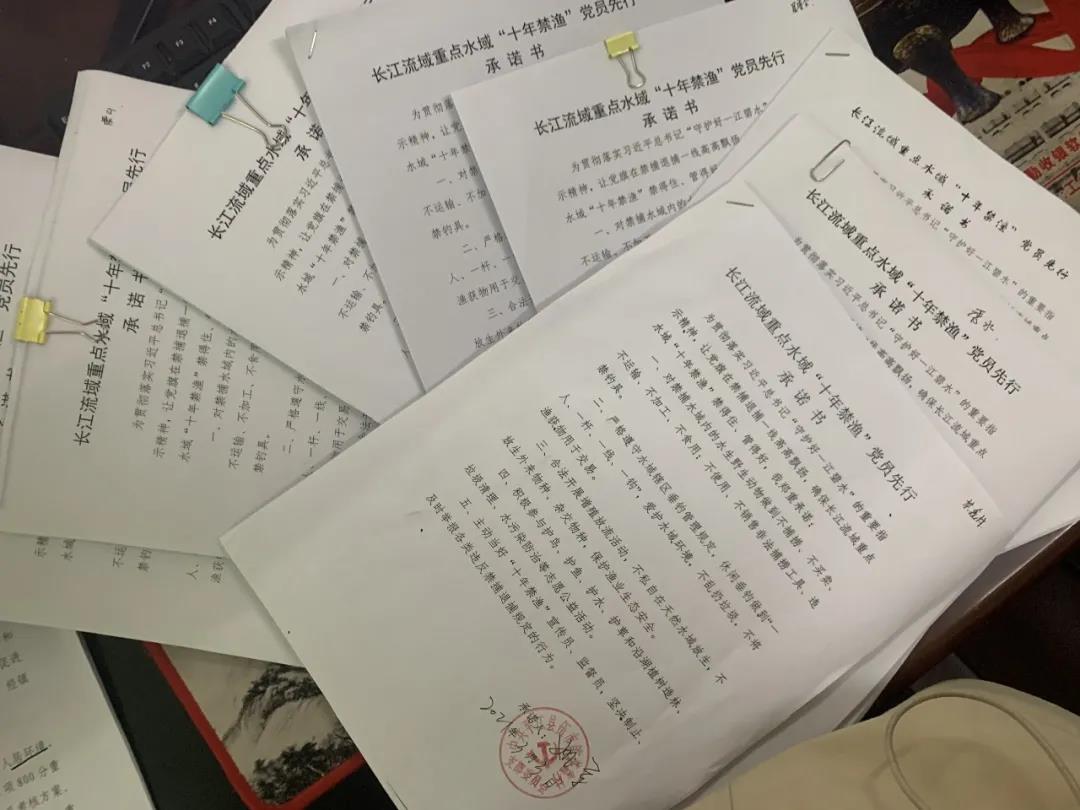 长江流域重点水域“十年禁渔”党员先行
承诺书
为贯彻落实习近平总书记“守护好一江碧水”的重要指
示精神，让党旗在禁捕退捕一线高高飘扬，确保长江流域重点
水域“十年禁渔”禁得住、管得好，我郑重承诺：
一、对禁捕水域内的水生野生动物做到不捕捞、不买卖、
不运输、不加工、不食用；不使用、不销售非法捕捞工具、造
禁钓具。
二、严格遵守水域辖区垂钓管理规定，休闲垂钓做到“一
人、一杆、一线、一钩”，爱护水域环境，不乱扔垃圾，不将
渔获物用于交易。
三、合法开展增殖放流活动，不私自在天然水域放生，不
放生外来物种、杂交物种，保护渔业生态安全。
四、积极参与护鸟、护鱼、护水、护草和沿湖植树造林、
垃圾清理、水污染防治等志愿公益活动。
五、主动当好“十年禁渔”宣传员、监督员，坚决制止、
及时举报各类违反禁捕退捕规定的行为。
承诺人：
长江流域重点水域“十年禁渔”党员先行
承诺书
为贯彻落实习近平总书记“守护好一江碧水”的重要指
长江流域重点水域“十年禁渔”党员先行
承诺书
习近平总书记“守护好一江碧水”的重要指
长江流域重点水域“十年禁渔”党员先行
承诺书
为贯彻落实习近平总书记“守护好一江碧水”
示精神，让党旗在禁捕退捕一线高高飘扬
水域“十年禁渔”禁得住、管得好
一、对禁捕水域内的
不运输、不加
长江流域重点水域“十年禁渔”党员先行
承诺书
为贯彻落
示精神，让党
水域“十年禁
一、对
不运输、不加
禁钓具。
二、严格
人、一杆、一
渔获物用于交
三、合法
放生外来
长江流域重点水域“十
承诺
为贯彻落实习近平
示精神，让党旗在禁捕
水域“十年禁渔”禁得
一、对禁捕
不运输、不
禁钓具。
长江流域重点水域“十年
党员先行
承诺书
为贯彻落实习近平总书记“
示精神，让党旗在禁捕退捕一
水域“十年禁渔”禁得住、
一、对禁捕水域内的
不运输、不加工、不食
禁钓具。
二、严格遵守水
一杆、一线、
用于交易
党员先行
示精
水域
不运
禁钓
人、
渔获
促进
经镇
人居环境
项800分重
考核方案，